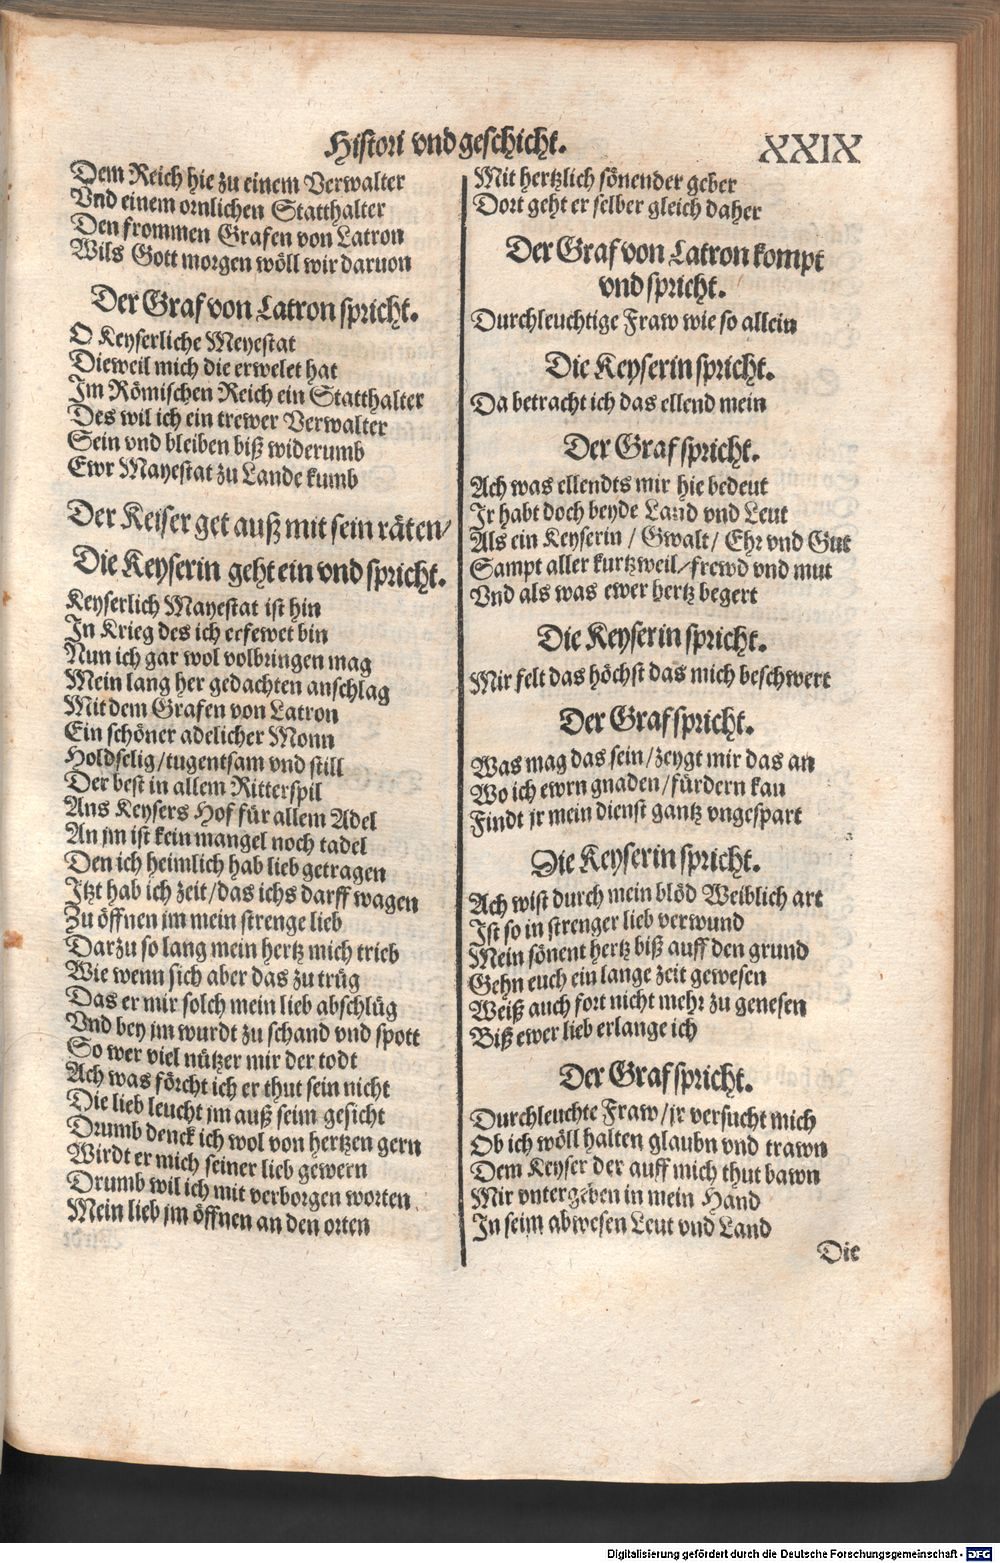 Histori vnd geschicht.
XXIX
Dem Reich hie zu einem Verwalter
Vnd einem ornlichen Statthalter
Den frommen Grafen von Latron
Wils Gott morgen wöll wir daruon
Der Graf von Latron spricht.
O Keyserliche Meyestat
Dieweil mich die erwelet hat
Im Römischen Reich ein Statthalter
Des wil ich ein trewer Verwalter
Sein vnd bleiben biß widerumb
Ewr Mayestat zu Lande kumb
Der Keiser get auß mit sein räten/
Die Keyserin geht ein vnd spricht.
Keyserlich Mayestat ist hin
In Krieg des ich erfewet bin
Nun ich gar wol volbringen mag
Mein lang her gedachten anschlag
Mit dem Grafen von Latron
Ein schöner adelicher Monn
Holdselig/tugentsam vnd still
Der best in allem Ritterspil
Ans Keysers Hof für allem Adel
An jm ist kein mangel noch tadel
Den ich heimlich hab lieb getragen
Itzt hab ich zeit/das ichs darff wagen
Zu öffnen jm mein strenge lieb
Darzu so lang mein hertz mich trieb
Wie wenn sich aber das zu trüg
Das er mir solch mein lieb abschlüg
Vnd bey jm wurdt zu schand vnd spott
So wer viel nützer mir der todt
Ach was förcht ich er thut sein nicht
Die lieb leucht jm auß seim gesicht
Drumb denck ich wol von hertzen gern
Wirdt er mich seiner lieb gewern
Drumb wil ich mit verborgen worten
Mein lieb jm öffnen an den orten
Mit hertzlich sönender geber
Dort geht er selber gleich daher
Der Graf von Latron kompt
vnd spricht.
Durchleuchtige Fraw wie so allein
Die Keyserin spricht.
Da betracht ich das ellend mein
Der Graf spricht.
Ach was ellendts mir hie bedeut
Ir habt doch beyde Land vnd Leut
Als ein Keyserin / Gwalt / Ehr vnd Gut
Sampt aller kurtzweil/frewd vnd mut
Vnd als was ewer hertz begert
Die Keyserin spricht.
Mir felt das höchst das mich beschwert
Der Graf spricht.
Was mag das sein/zeygt mir das an
Wo ich ewrn gnaden/fürdern kan
Findt jr mein dienst gantz vngespart
Die Keyserin spricht.
Ach wist durch mein blöd Weiblich art
Ist so in strenger lieb verwund
Mein sönent hertz biß auff den grund
Gehn euch ein lange zeit gewesen
Weiß auch fort nicht mehr zu genesen
Biß ewer lieb erlange ich
Der Graf spricht.
Durchleuchte Fraw/jr versucht mich
Ob ich wöll halten glaubn vnd trawn
Dem Keyser der auff mich thut bawn
Mir vntergeben in mein Hand
In seim abwesen Leut vnd Land
Die
Digitalisierung gefördert durch die Deutsche Forschungsgemeinschaft - DFG